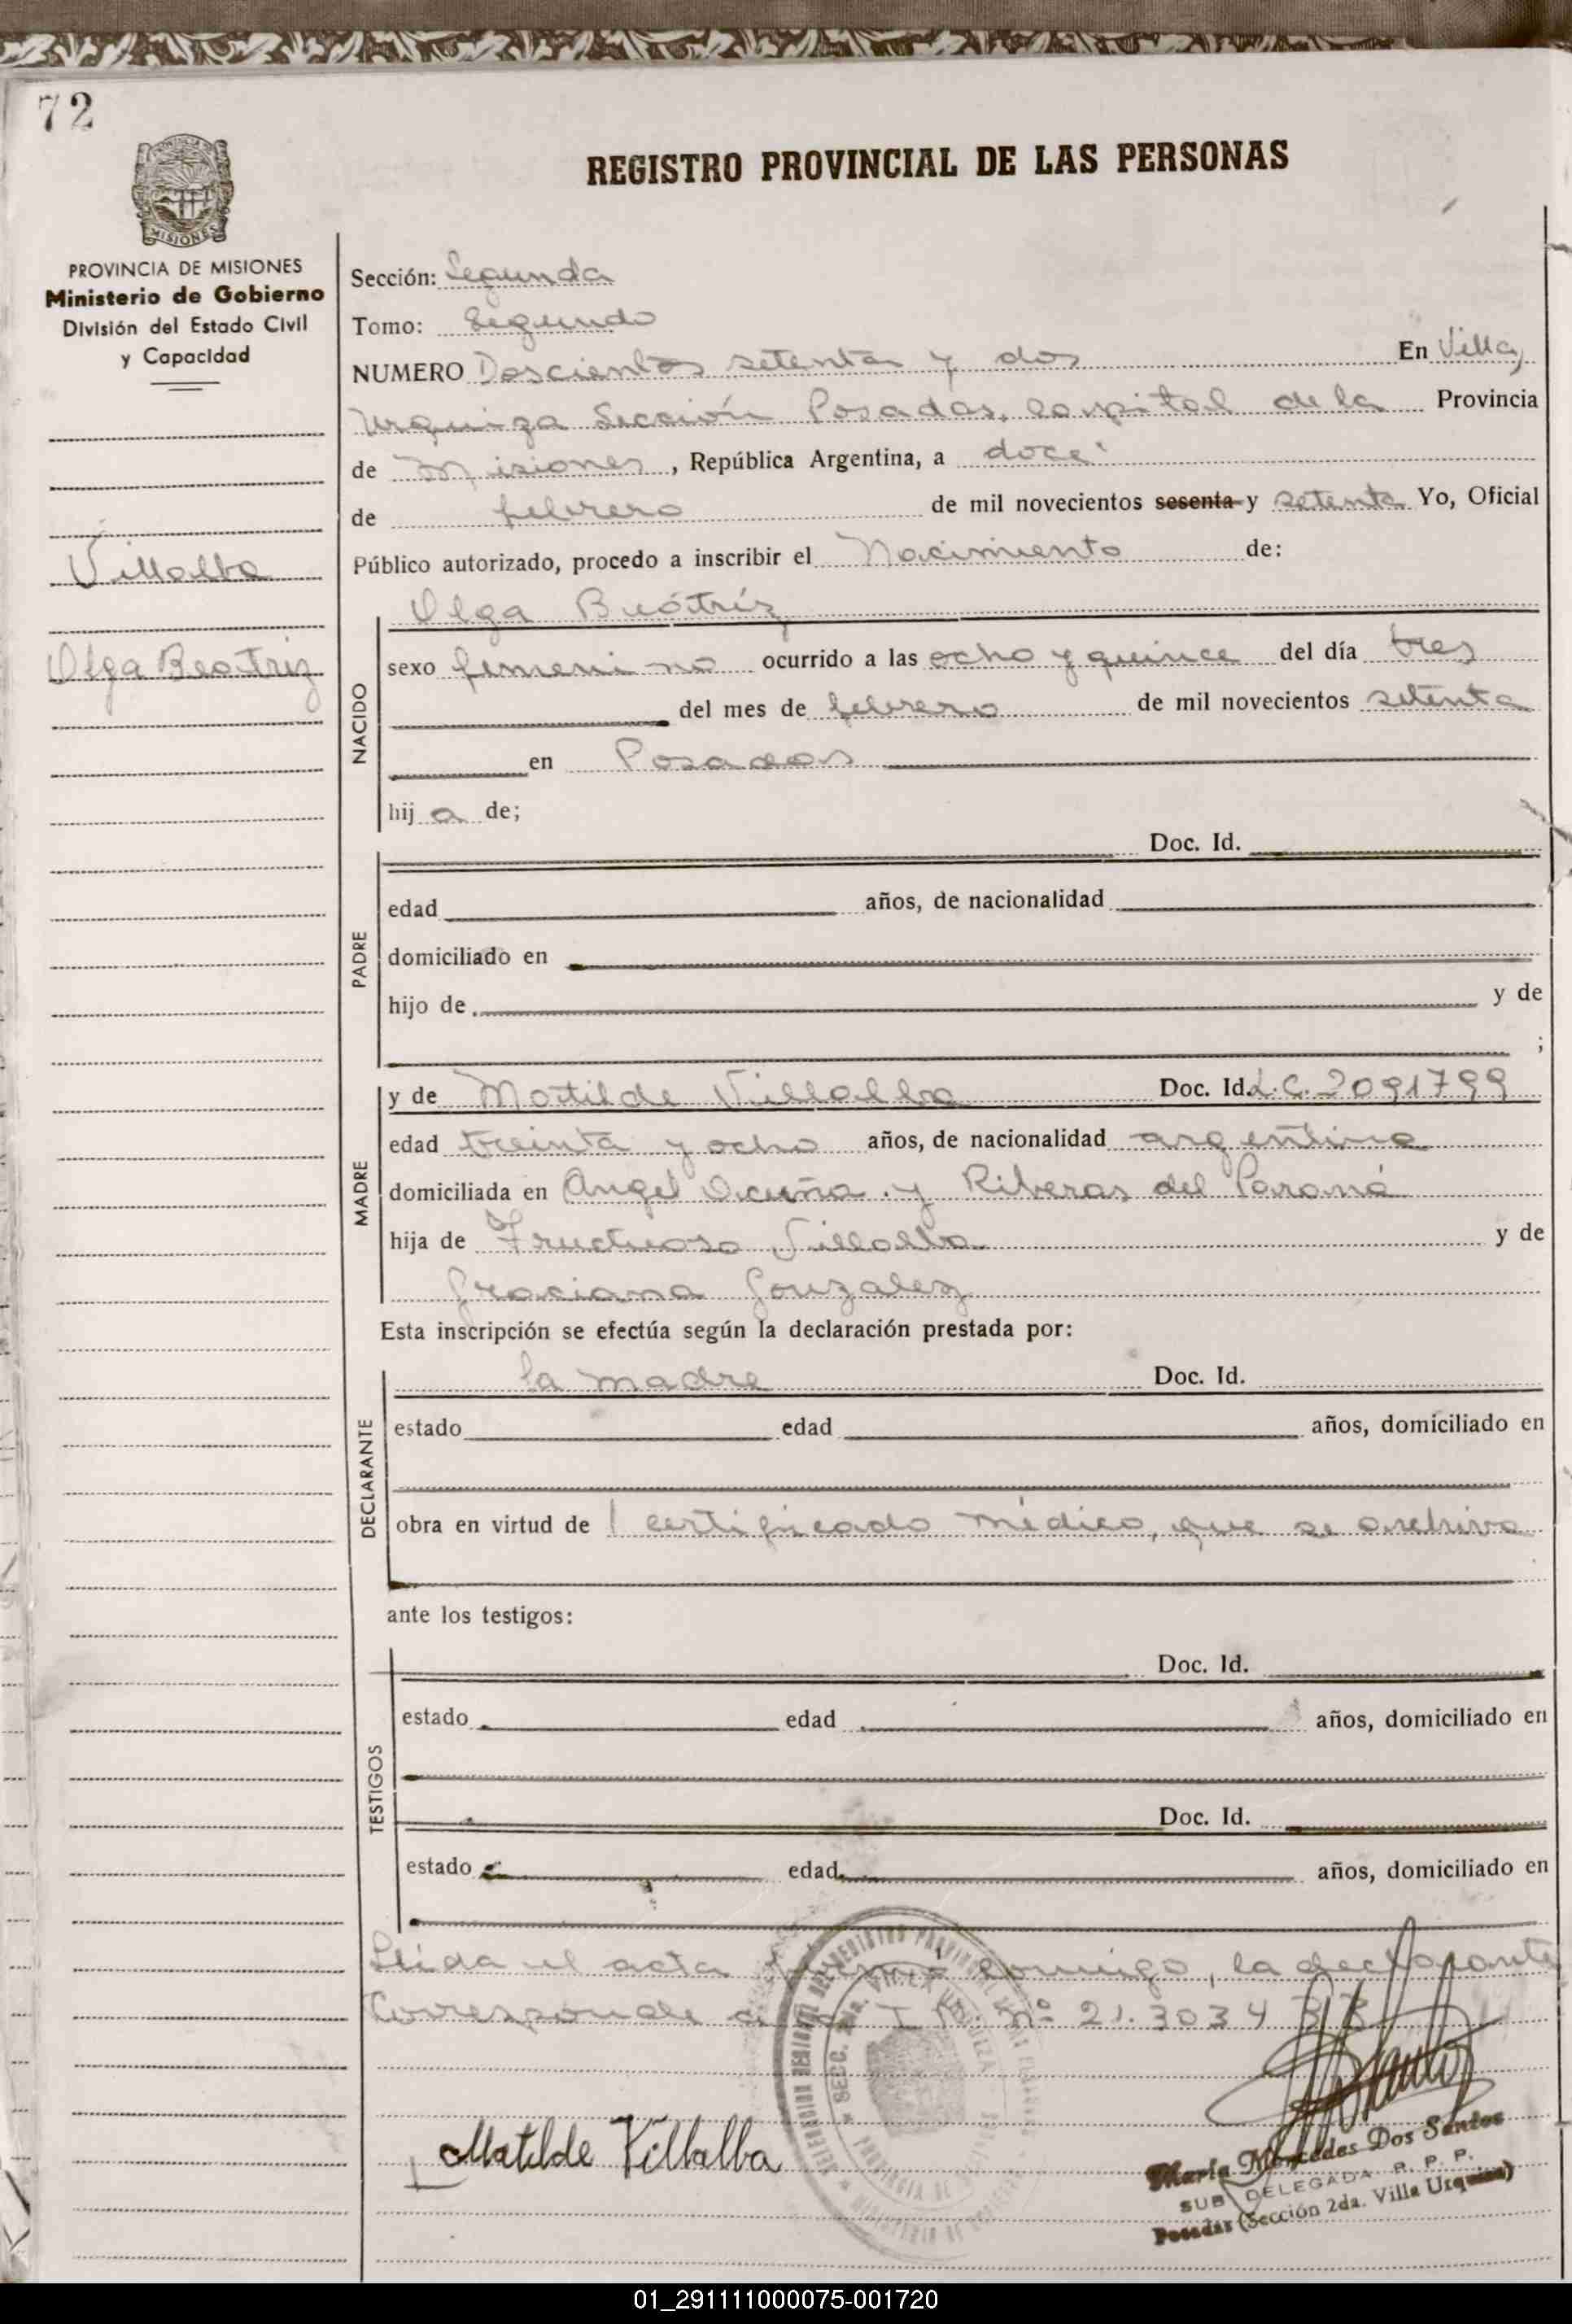 72
REGISTRO PROVINCIAL DE LAS PERSONAS
MISIONES
PROVINCIA DE MISIONES
Ministerio de Gobierno
División del Estado Civil
y Capacidad
Villalba
Olga Beatriz
Sección: Segunda
Tomo: Segundo
NUMERO Doscientos setenta y dos En Villa
Urquiza Sección Posadas, capital de la Provincia
de Misiones, República Argentina, a doce
de febrero de mil novecientos sesenta y setenta Yo, Oficial
Público autorizado, procedo a inscribir el Nacimiento de:
Olga Beatríz
NACIDO
sexo femenino ocurrido a las ocho y quince del día tres
del mes de febrero de mil novecientos setenta
en Posadas
hij a de;
PADRE
Doc. Id.
edad años, de nacionalidad
domiciliado en
hijo de y de
;
MADRE
y de Matilde Villalba Doc. Id. L.C. 2091799
edad treinta y ocho años, de nacionalidad argentina
domiciliada en Angel Acuña y Riberas del Paraná
hija de Fructuoso Villalba y de
Graciana Gonzalez
Esta inscripción se efectúa según la declaración prestada por:
DECLARANTE
la madre Doc. Id.
estado edad años, domiciliado en
obra en virtud de 1 certificado médico, que se archiva
ante los testigos:
TESTIGOS
Doc. Id.
estado edad años, domiciliado en
Doc. Id.
estado edad años, domiciliado en
Leida el acta firma conmigo, la declarante
Corresponde nº 21.3034
Matilde Villalba
María Mercedes Dos Santos
SUB DELEGADA R. P. P.
Posadas (Sección 2da. Villa Urquiza)
01_291111000075-001720